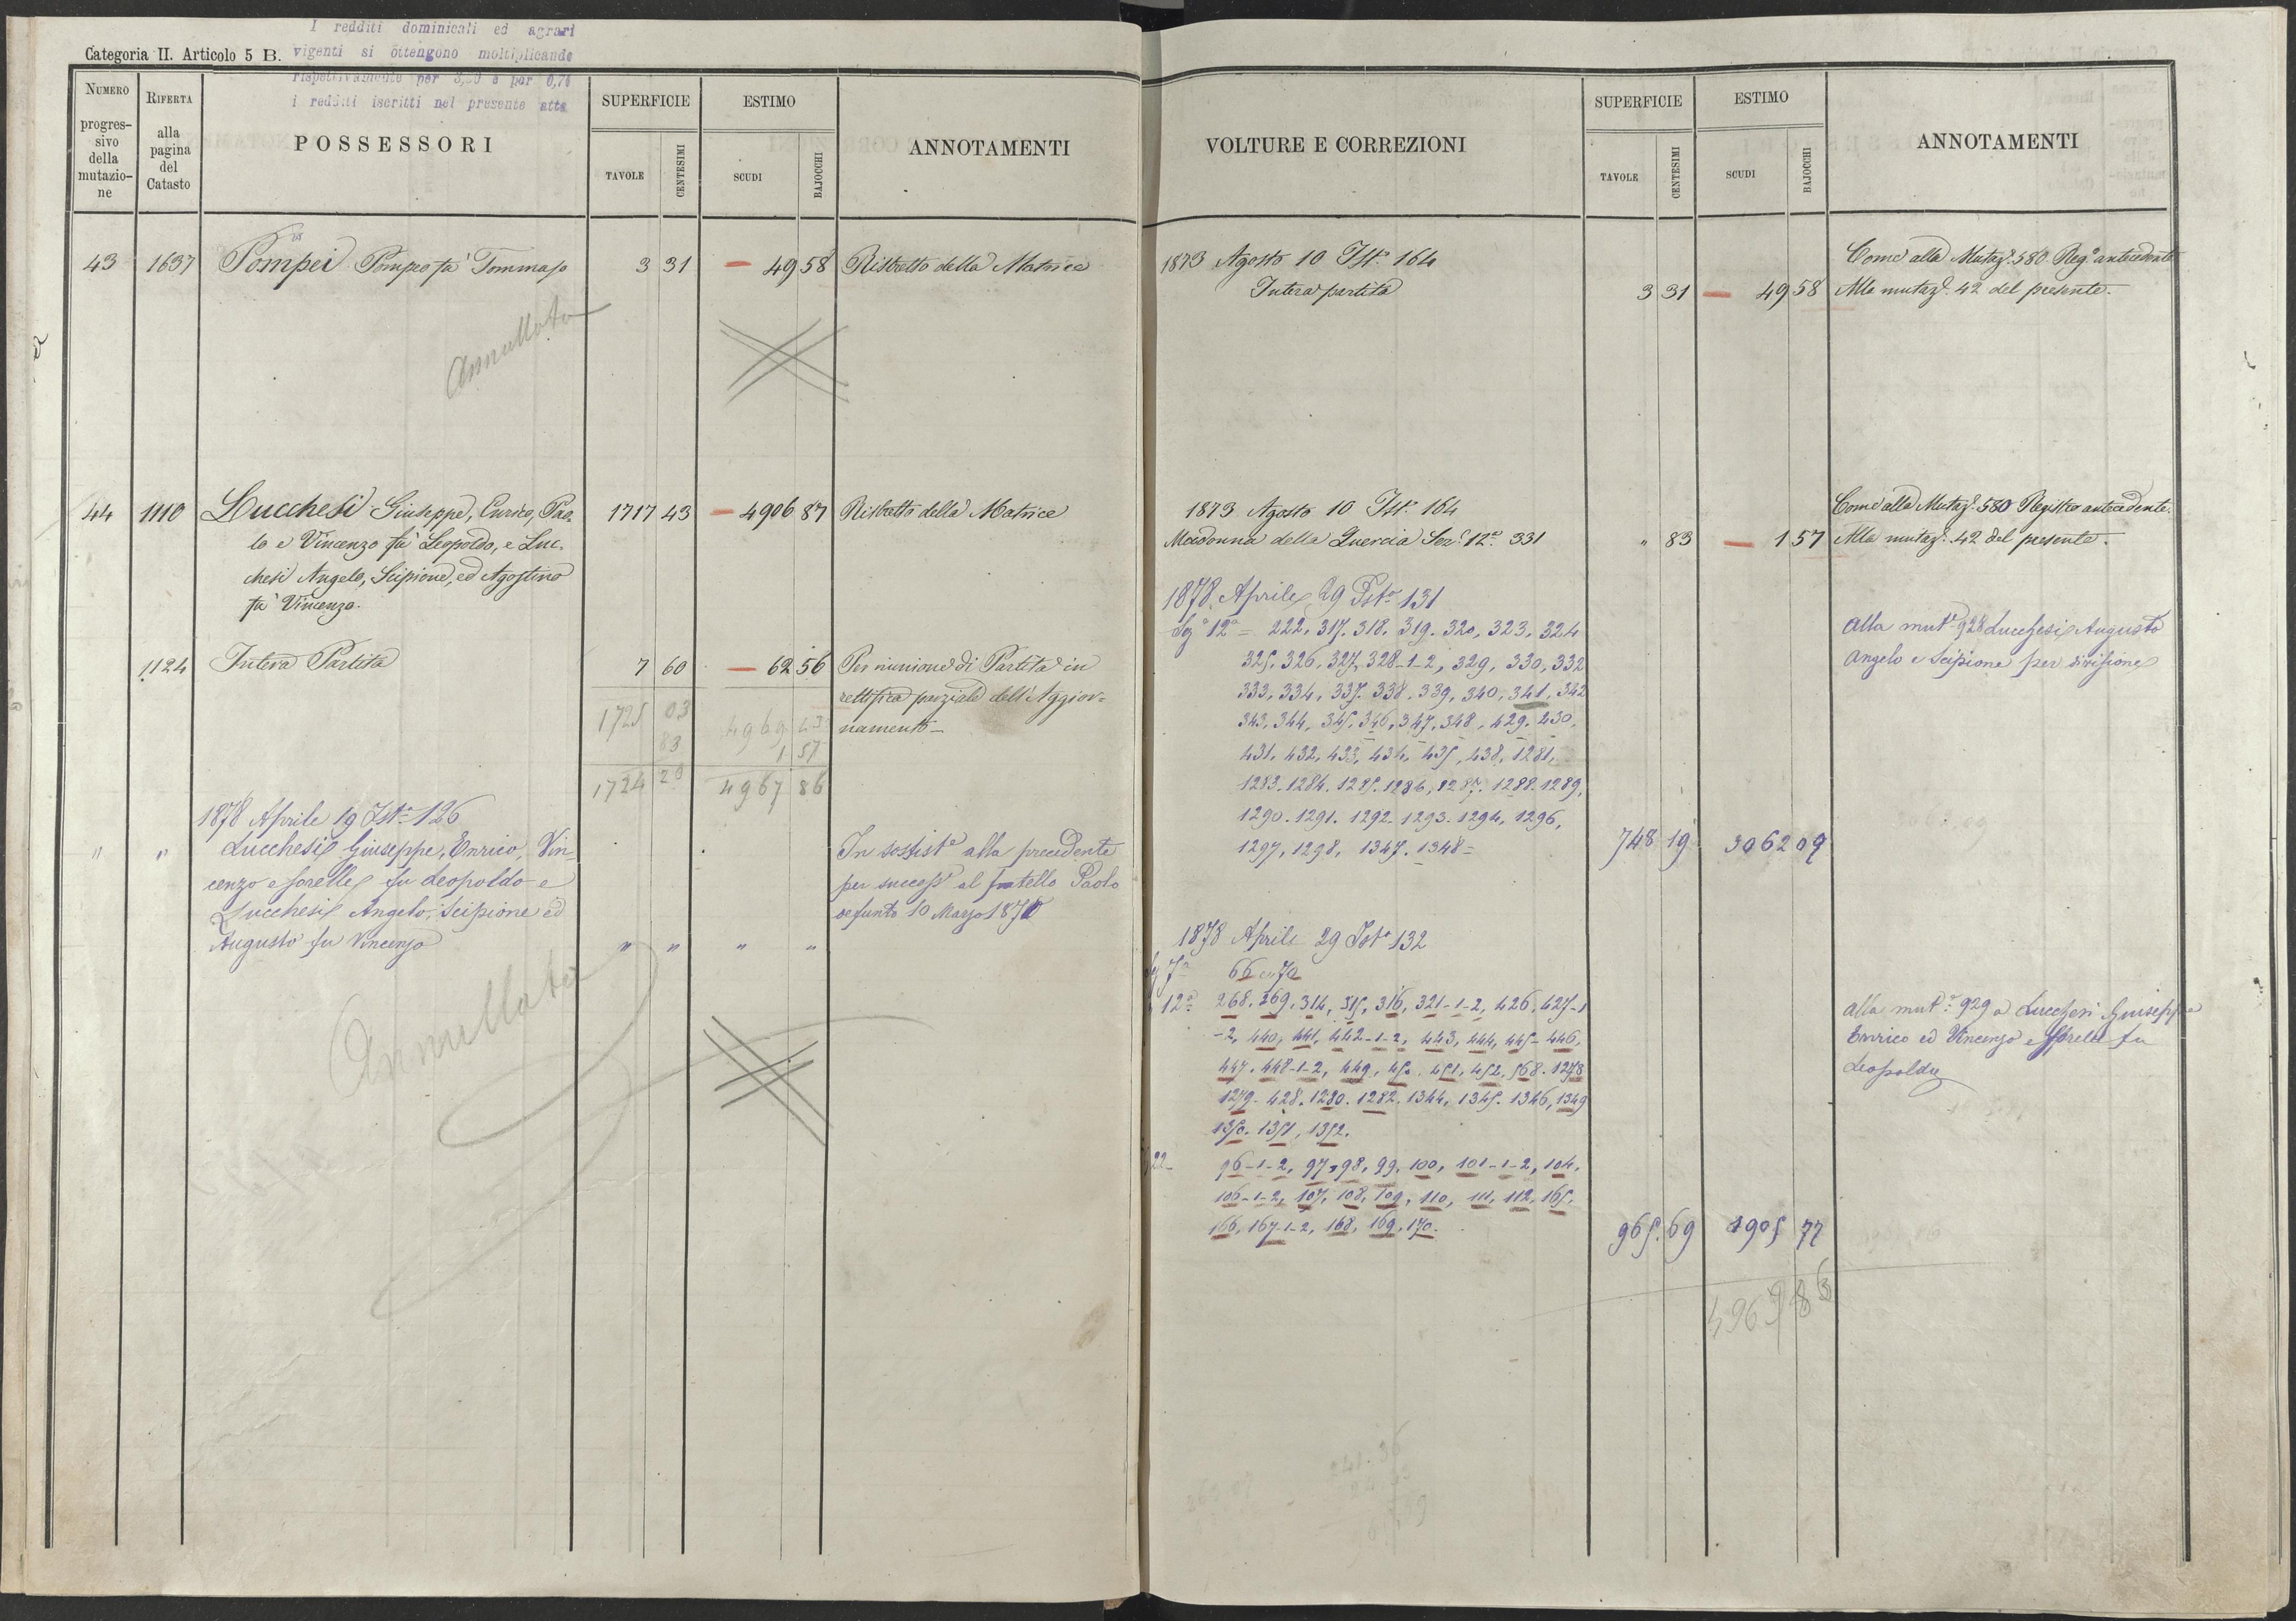 I redditi dominicali ed agrari
Categoria II. Articolo 5 B. vigenti si ottengono moltiplicando
rispettivamente per 3,50 e per 0,76
i redditi iscritti nel presente atto
NUMERO progres- sivo della mutazio- ne
RIFERTA alla pagina del Catasto
POSSESSORI
SUPERFICIE
TAVOLE CENTESIMI
ESTIMO
SCUDI BAJOCCHI
ANNOTAMENTI
43 1637 Pompei Pompeo fu Tommaso 3 31 — 49 58 Ristretto della Matrice
Annullata
44 1110 Lucchesi Giuseppe, Enrico, Pao-
lo e Vincenzo fu Leopoldo, e Luc-
chesi Angelo, Scipione, ed Agostino
fu Vincenzo.
1717 43 — 4906 87 Ristretto della Matrice
1124 Intera Partita 7 60 — 62 56 Per riunione di Partita in
rettifica parziale dell'Aggior-
namento —
1725 03 4969 43
83 1 57
1724 20 4967 86
1878 Aprile 19 Ist.a 126
" " Lucchesi Giuseppe, Enrico, Vin-
cenzo e sorelle fu Leopoldo e
Lucchesi Angelo, Scipione ed
Augusto fu Vincenzo " " " "
In sostist.e alla precedente
per success.e al fratello Paolo
defunto 10 Marzo 1870
Annullata
VOLTURE E CORREZIONI
SUPERFICIE
TAVOLE CENTESIMI
ESTIMO
SCUDI BAJOCCHI
ANNOTAMENTI
1873 Agosto 10 Ist.a 164
Intera partita 3 31 — 49 58
Come alla Mutaz.e 580 Reg.o antecedente
Alla mutaz.e 42 del presente.
1873 Agosto 10 Ist.a 164
Madonna della Quercia Sez.e 12.a 331 " 83 — 1 57
Come alla Mutaz.e 580 Registro antecedente.
Alla mutaz.e 42 del presente.
1878 Aprile 29 Ist.a 131
Sez.e 12.a = 222, 317. 318. 319. 320, 323, 324
325. 326. 327. 328-1-2, 329, 330, 332
333, 334, 337. 338. 339, 340, 341, 342
343, 344, 345. 346, 347, 348, 429. 430,
431. 432, 433, 434, 435, 438, 1281,
1283. 1284. 1285. 1286, 1287. 1288. 1289,
1290. 1291. 1292. 1293. 1294, 1296,
1297, 1298, 1347. 1348 = 748 19 3062 09
Alla mut.e 928 Lucchesi Augusto
Angelo e Scipione per divisione
1878 Aprile 29 Ist.a 132
Sez 7.a 66 e 70
" 12.a 268. 269. 314, 315, 316, 321-1-2, 426, 427-1
-2, 440, 441, 442-1-2, 443, 444, 445- 446,
447. 448-1-2, 449, 450. 451, 452, 568. 1278
1279. 428. 1280. 1282. 1344, 1345. 1346, 1349
1350. 1351, 1352.
" 22 - 96-1-2, 97, 98, 99, 100, 101-1-2, 104,
106-1-2, 107, 108, 109, 110, 111, 112, 165,
166, 167-1-2, 168, 169, 170. 965. 69 1905 77
Alla mut.e 929 a Lucchesi Giuseppe
Enrico ed Vincenzo e sorelle fu
Leopoldo
4967 86